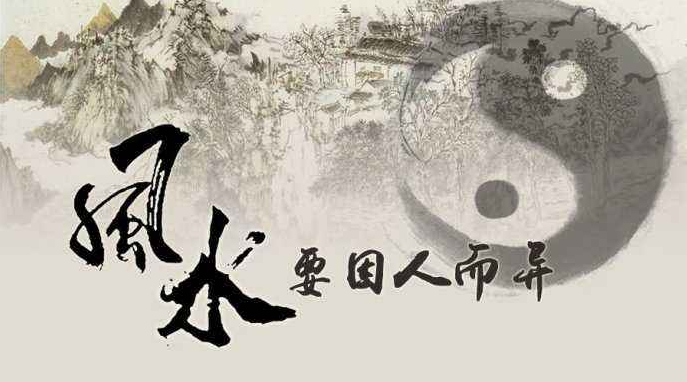 風水
要因人而异